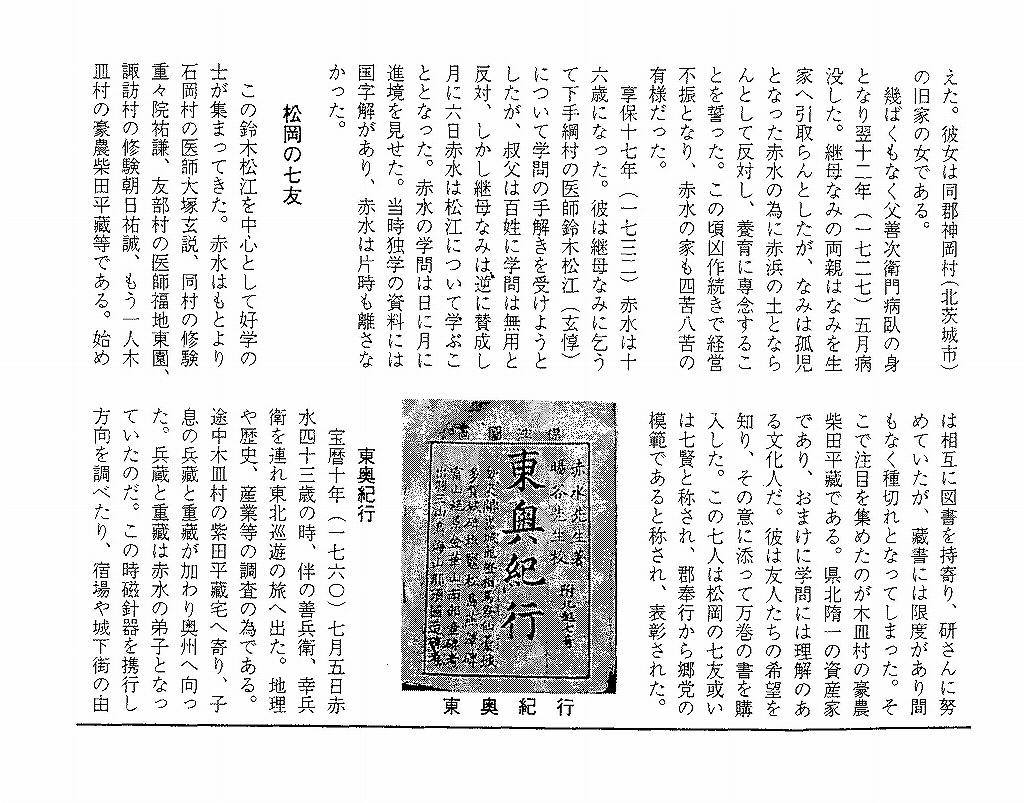 えた。彼女は同郡神岡村(北茨城市)
の旧家の女である。
　幾ばくもなく父善次衛門病臥の身
となり翌十二年（一七二七）五月病
没した。継母なみの両親はなみを生
家へ引取らんとしたが、なみは孤児
となった赤水の為に赤浜の土となら
んとして反対し、養育に専念するこ
とを誓った。この頃凶作続きで経営
不振となり、赤水の家も四苦八苦の
有様だった。
　享保十七年（一七三二）赤水は十
六歳になった。彼は継母なみに乞う
て下手綱村の医師鈴木松江（玄惇）
について学問の手解きを受けようと
したが、叔父は百姓に学問は無用と
反対、しかし継母なみは逆に賛成し
月に六日赤水は松江について学ぶこ
ととなった。赤水の学問は日に月に
進境を見せた。当時独学の資料には
国字解があり、赤水は片時も離さな
かった。
松岡の七友
　この鈴木松江を中心として好学の
士が集まってきた。赤水はもとより
石岡村の医師大塚玄説、同村の修験
重々院祐謙、友部村の医師福地東園、
諏訪村の修験朝日祐誠、もう一人木
皿村の豪農柴田平蔵等である。始め
は相互に図書を持寄り、研さんに努
めていたが、蔵書には限度があり間
もなく種切れとなってしまった。そ
こで注目を集めたのが木皿村の豪農
柴田平蔵である。県北隋一の資産家
であり、おまけに学問には理解のあ
る文化人だ。彼は友人たちの希望を
知り、その意に添って万巻の書を購
入した。この七人は松岡の七友或い
は七賢と称され、郡奉行から郷党の
模範であると称され、表彰された。
赤水先生著
東奥紀行
東奥紀行
東奥紀行
　宝暦十年（一七六〇）七月五日赤
水四十三歳の時、伴の善兵衛、幸兵
衛を連れ東北巡遊の旅へ出た。地理
や歴史、産業等の調査の為である。
途中木皿村の紫田平蔵宅へ寄り、子
息の兵蔵と重蔵が加わり奥州へ向っ
た。兵蔵と重蔵は赤水の弟子となっ
ていたのだ。この時磁針器を携行し
方向を調べたり、宿場や城下街の由